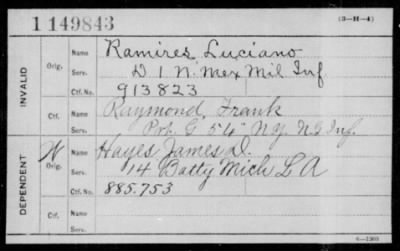 1149843
(3-H-4)
INVALID
Orig.
Name Ramires, Luciano
Serv. D 1 N. Mex Mil Inf
Ctf. No. 913823
Ctf.
Name Raymond, Frank
Serv. G 54" N.Y. N.G Inf.
DEPENDENT
W
Orig.
Name Hayes James D.
Serv. 14 Batty Mich L A
Ctf. No. 885.753
Ctf.
Name
Serv.
6-1303